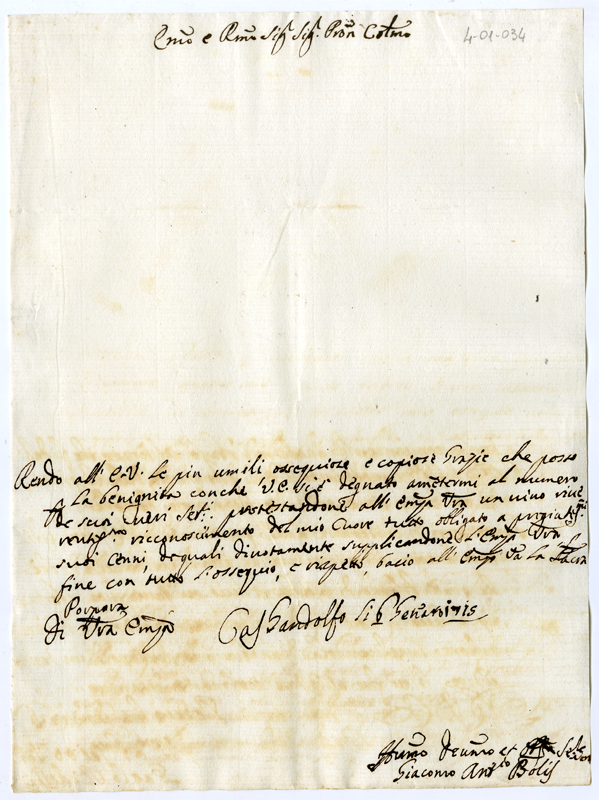 Emo e Rmo Sig Sig. Pron Colmo
4-01-034
Rendo all' E.V. le piu umili ossequiose e copiose Grazie che posso
La benignità con che V.E. si è degnato ametermi al numero
de suoi veri Set: protestandone all' Emza Vra un vivo rive
rentissmo ricconoscimento del mio Cuore tutto obligato a pregiatmi
suoi Cenni, de quali divotamente supplicandone l'Emza Vra
fine con tutto l'ossequio, e rispetto, bacio all' Emza Va la Sacra
Porpora
Di Vra Emza Castel Gandolfo li
Humo Deumo et Se
Giacomo Anto Bolis